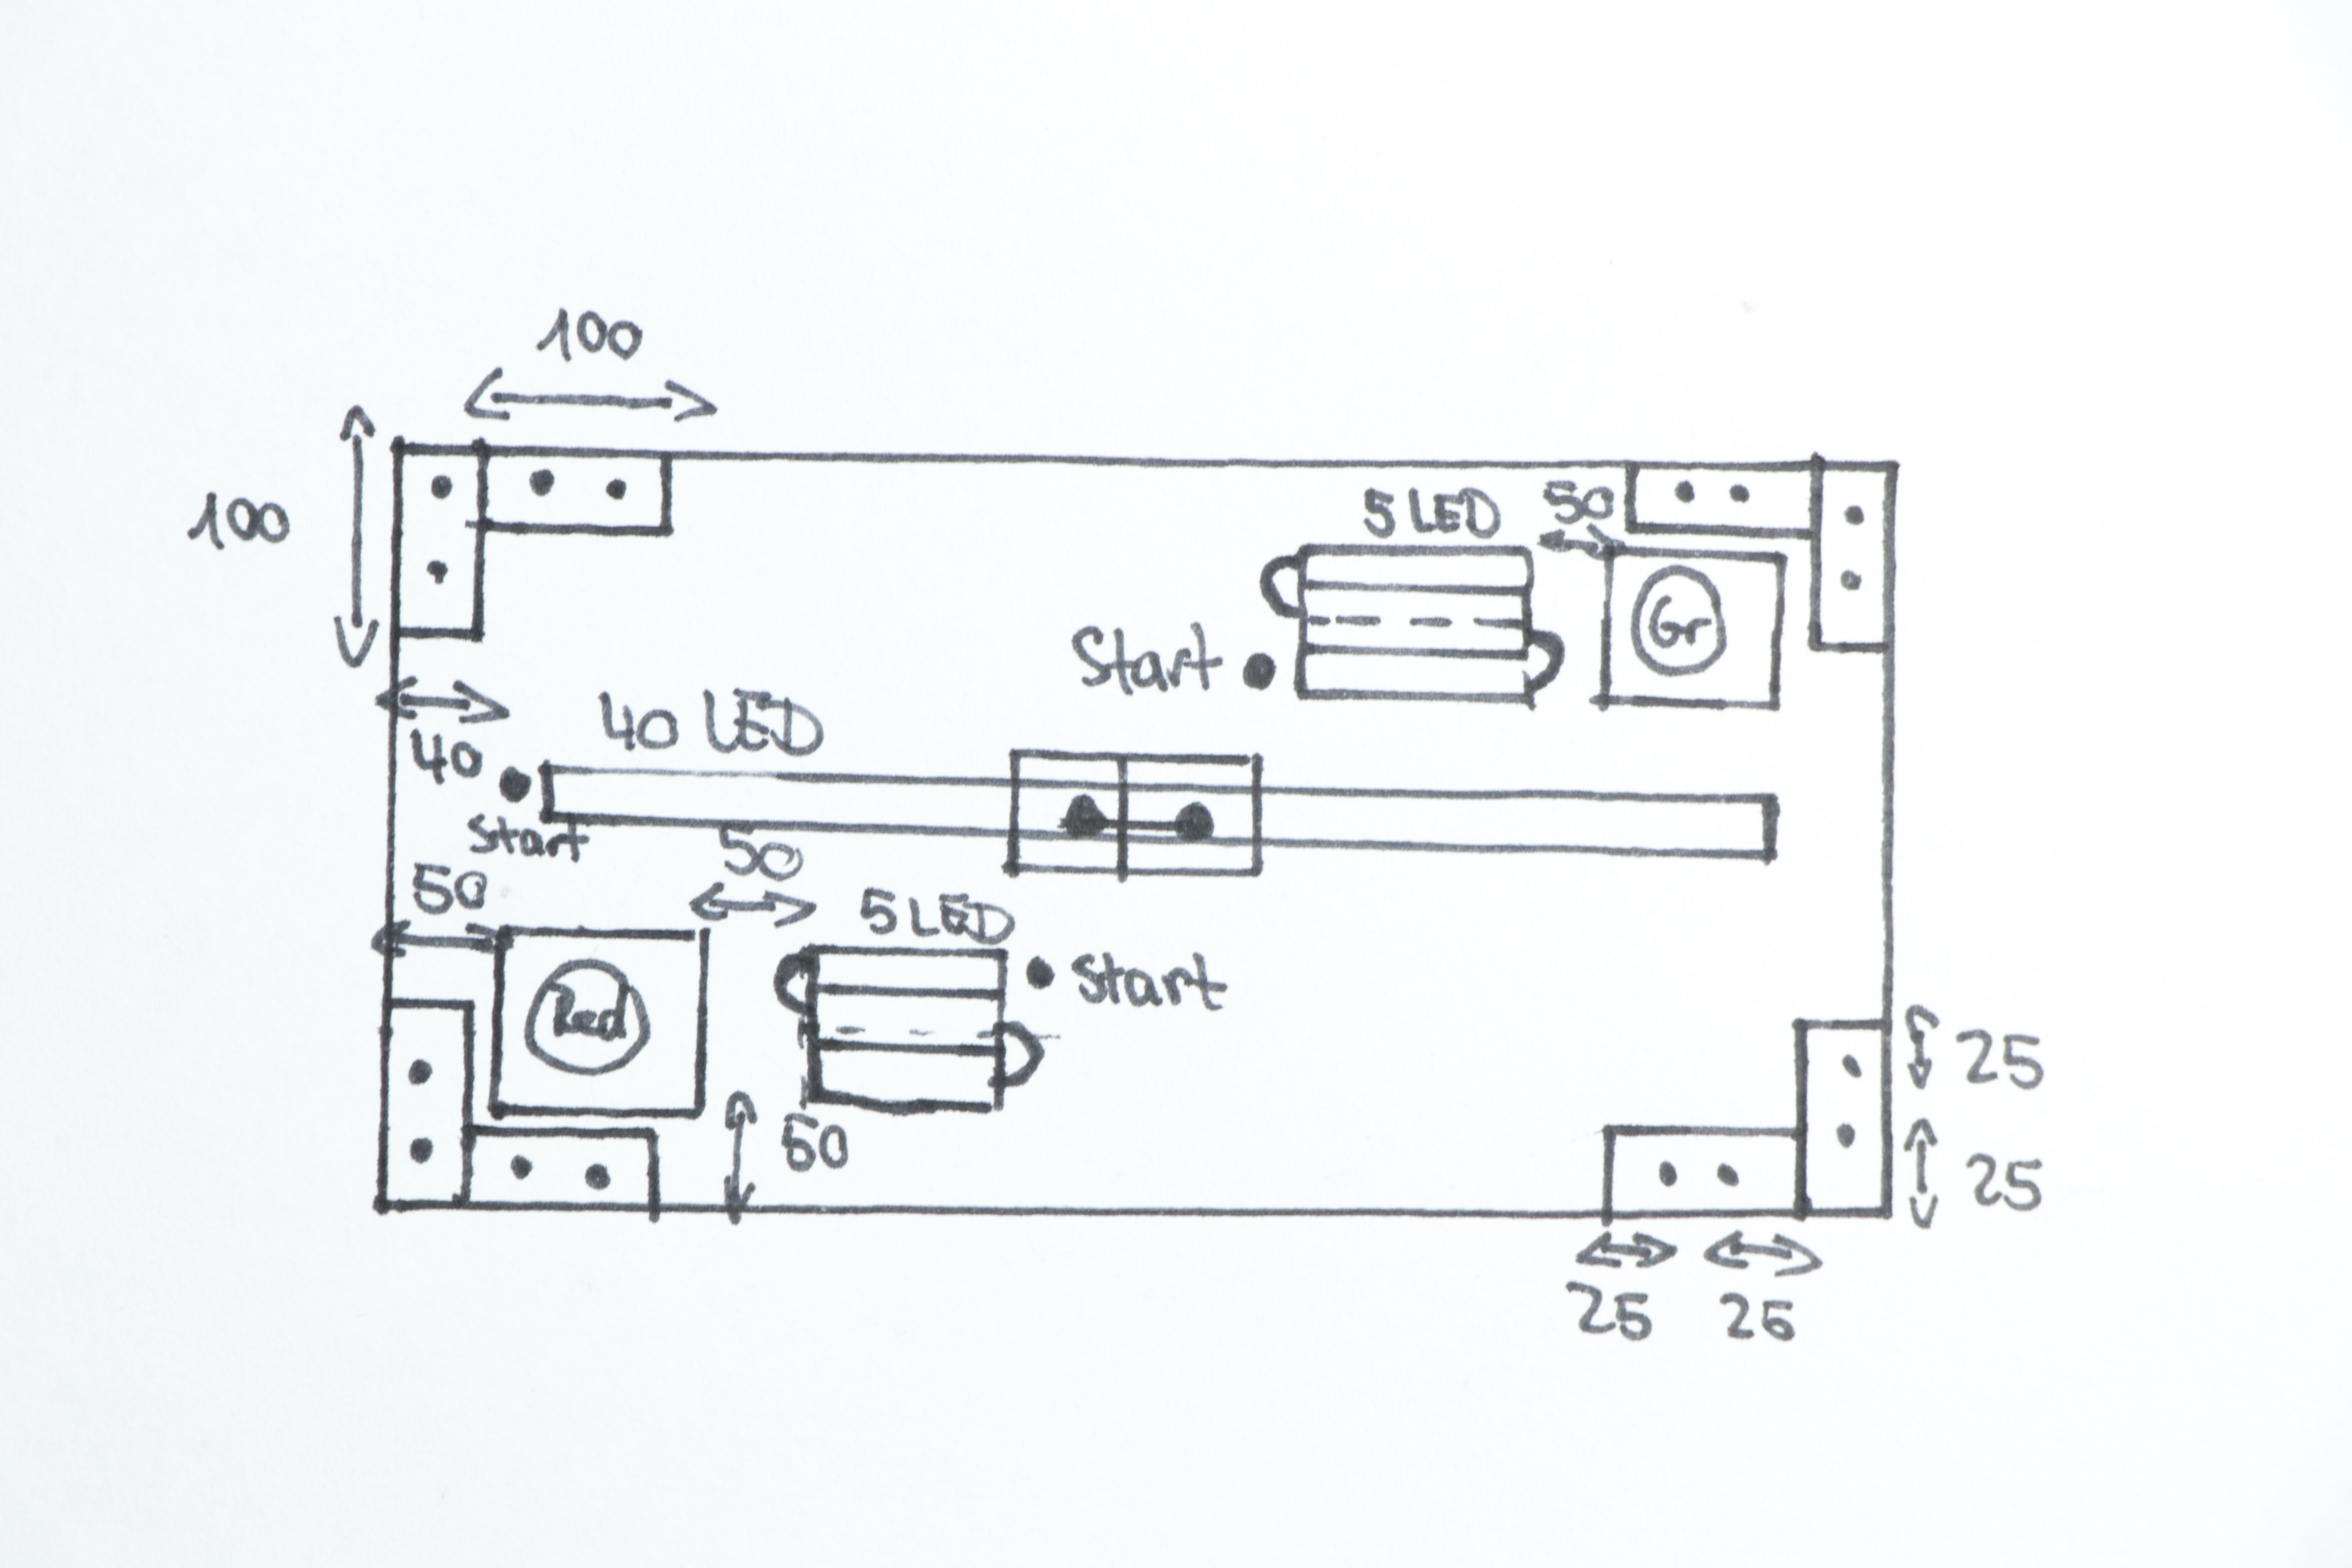 100
100
5 LED
50
Gr
Start
40
40 LED
Start
50
50
5 LED
Start
Red
25
50
25
25
25